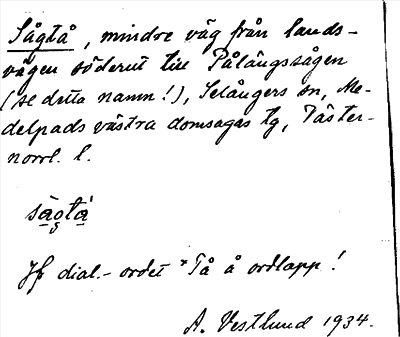 Sågtå, mindre väg från lands-
vägen söderut till Pålängssågen
(se detta namn!), Selångers sn, Me-
delpads västra domsagas tg, Väster-
norrl. l.
sågtá
Jfr dial.-ordet *Tå å ordlapp!
A. Vestlund 1934.